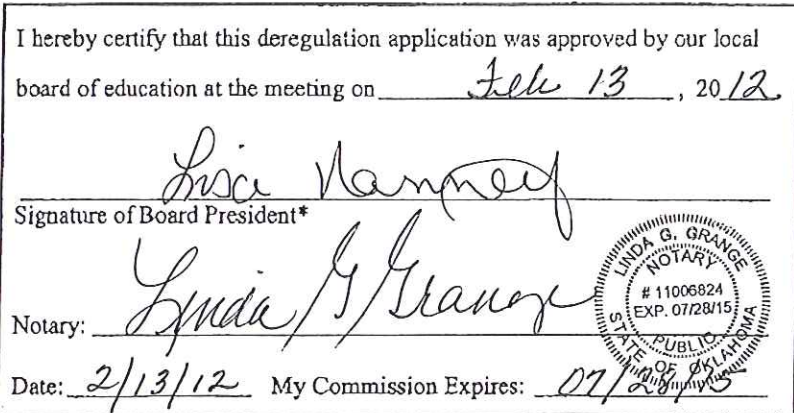 I hereby certify that this deregulation application was approved by our local
board of education at the meeting on Feb 13, 2012.
Lisa Nanney
Signature of Board President*
Notary: Linda G Grange
LINDA G. GRANGE
NOTARY
# 11006824
EXP. 07/28/15
PUBLIC
STATE OF OKLAHOMA
Date: 2/13/12 My Commission Expires: 07/28/15